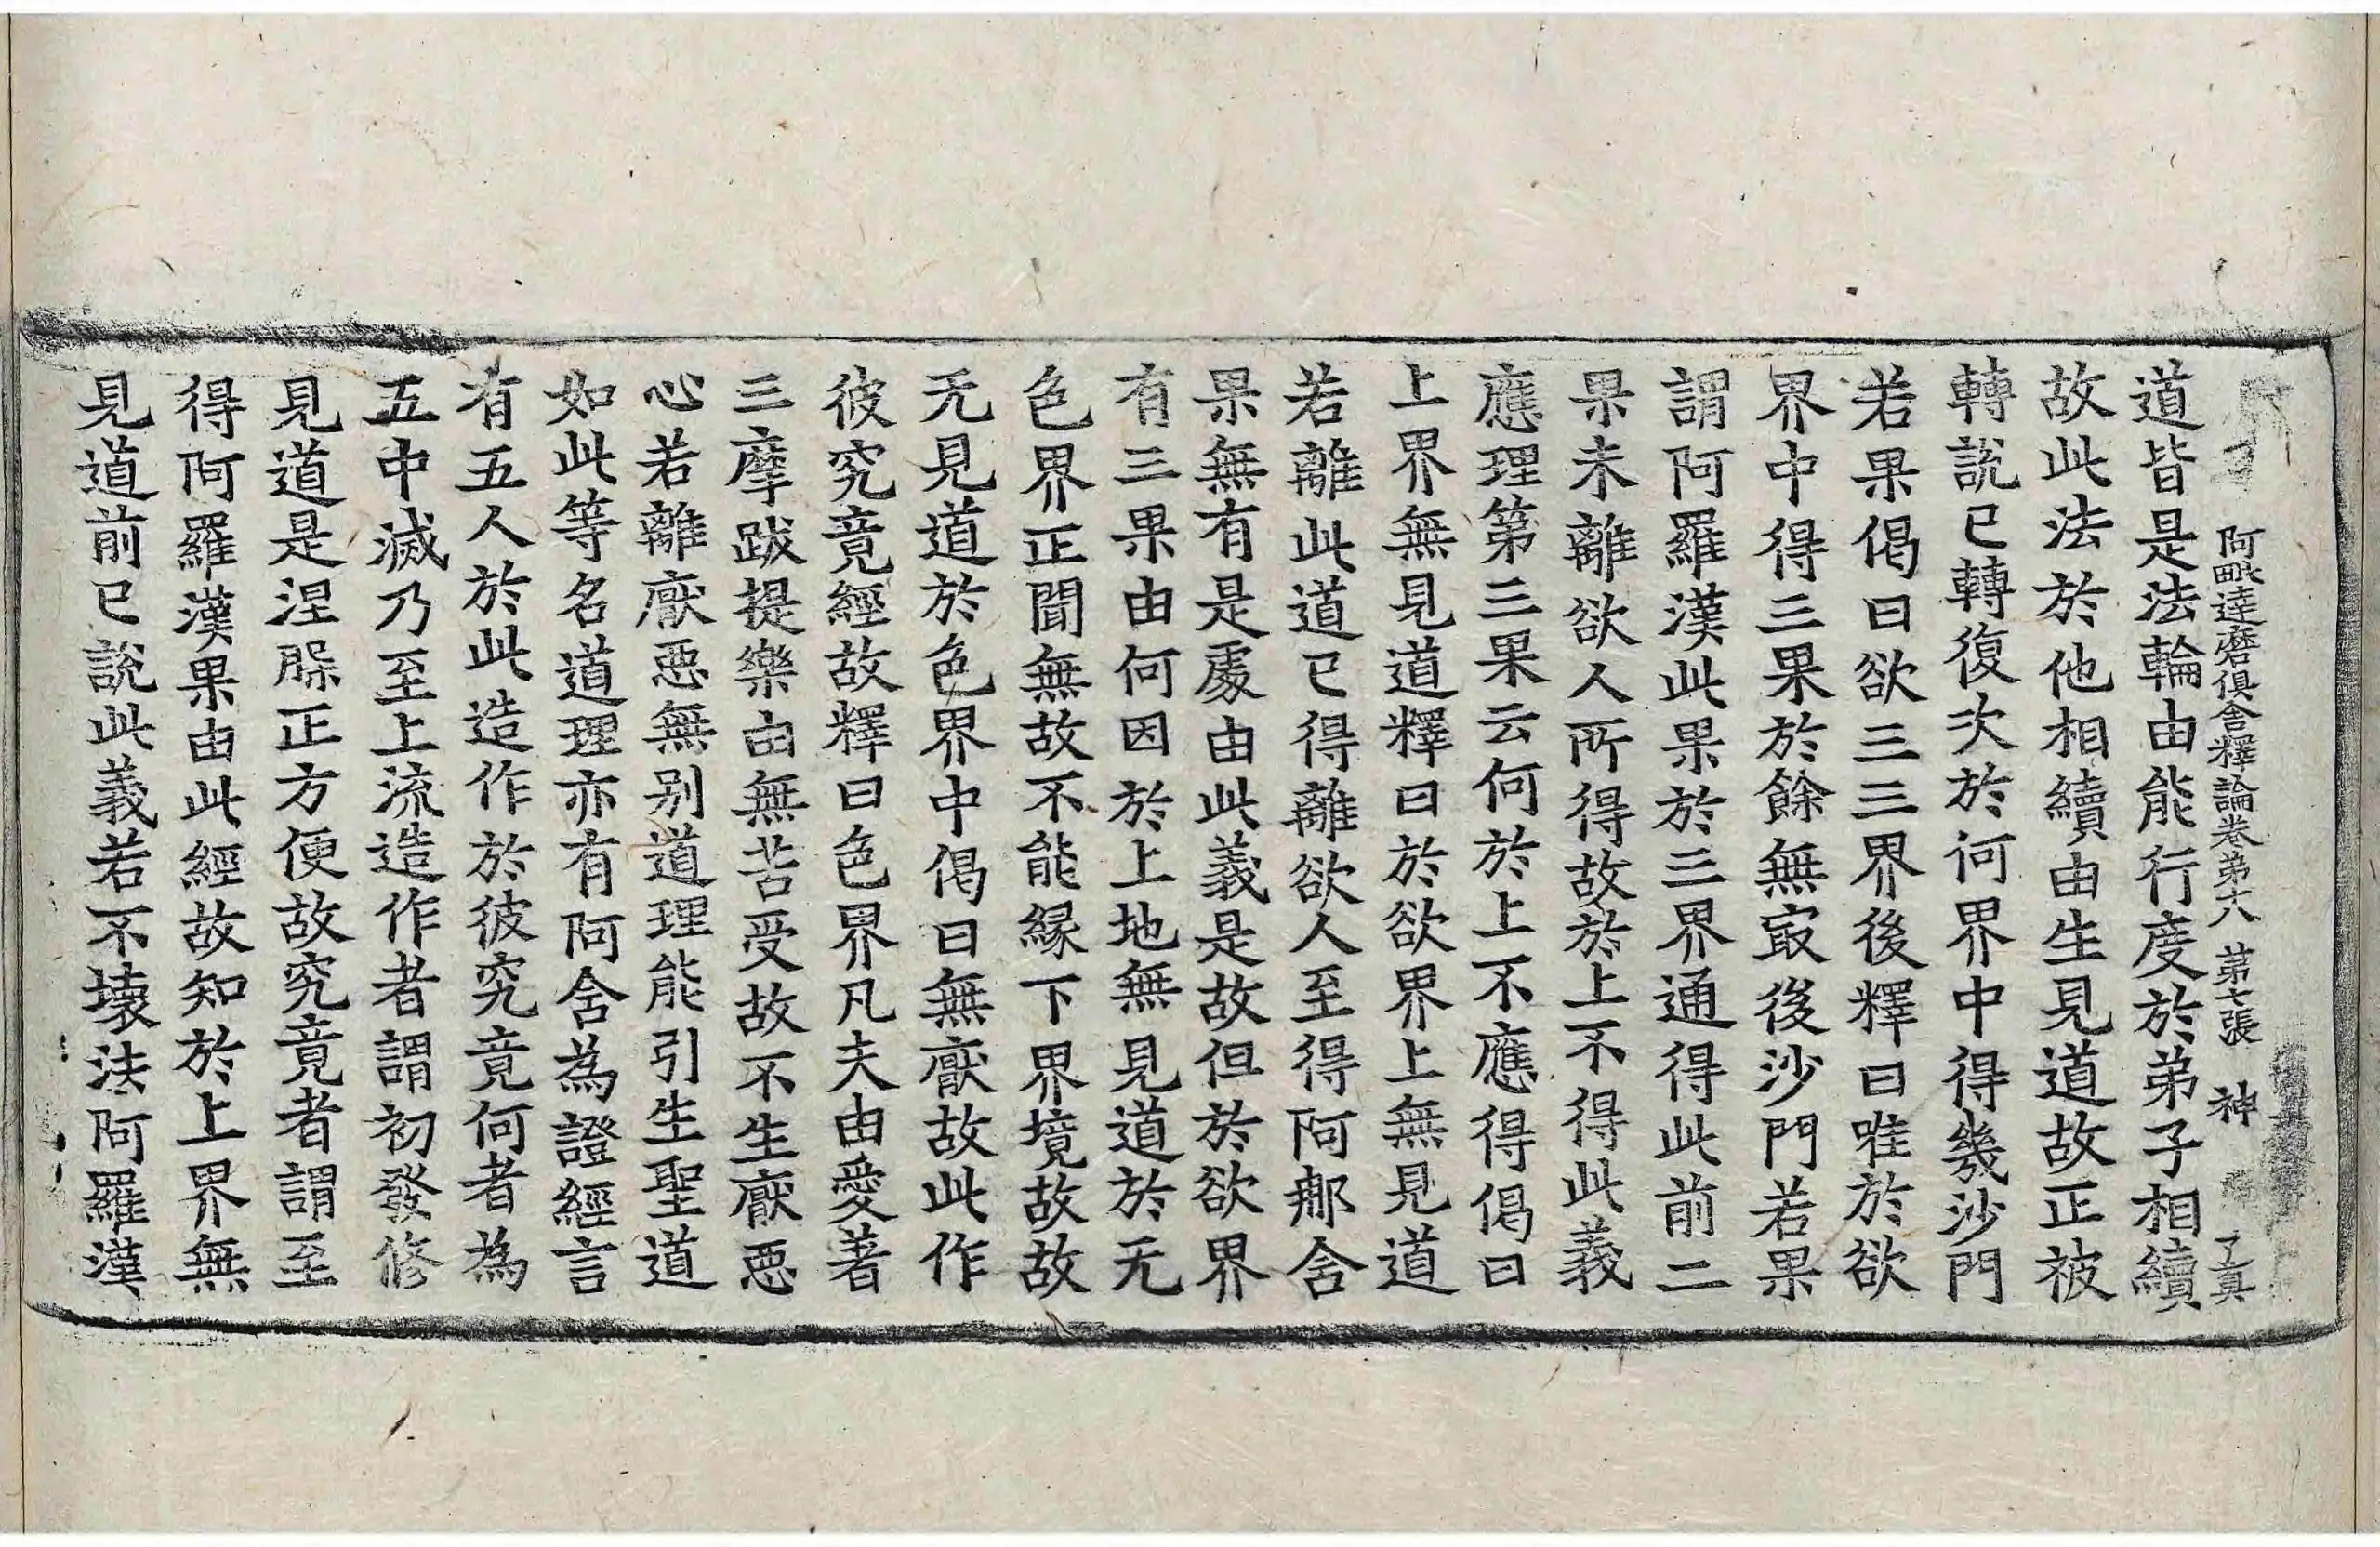 阿毗達磨俱舍釋論卷第十八　第七張　神　了眞
道皆是法輪由能行度於弟子相續
故此法於他相續由生見道故正被
轉說已轉復次於何界中得幾沙門
若果偈曰欲三三界後釋曰唯於欲
界中得三果於餘無㝡後沙門若果
謂阿羅漢此果於三界通得此前二
果未離欲人所得故於上不得此義
應理第三果云何於上不應得偈曰
上界無見道釋曰於欲界上無見道
若離此道已得離欲人至得阿那含
果無有是處由此義是故但於欲界
有三果由何因於上地無見道於无
色界正聞無故不能緣下界境故故
无見道於色界中偈曰無厭故此作
彼究竟經故釋曰色界凡夫由愛著
三摩跋提樂由無苦受故不生厭惡
心若離厭惡無別道理能引生聖道
如此等名道理亦有阿舍為證經言
有五人於此造作於彼究竟何者為
五中滅乃至上流造作者謂初發修
見道是涅槃正方便故究竟者謂至
得阿羅漢果由此經故知於上界無
見道前已說此義若不壞法阿羅漢